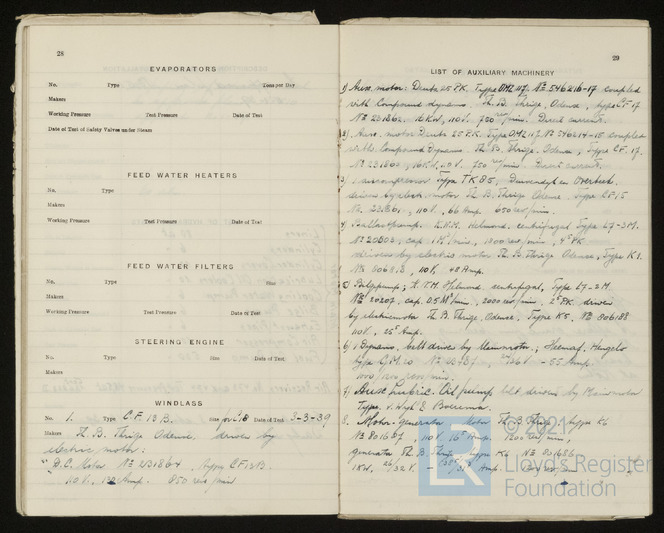 28
EVAPORATORS
No. Type Tons per Day
Makers
Working Pressure Test Pressure Date of Test
Date of Test of Safety Valves under Steam
FEED WATER HEATERS
No. Type
Makers
Working Pressure Test Pressure Date of Test
FEED WATER FILTERS
No. Type Size
Makers
Working Pressure Test Pressure Date of Test
STEERING ENGINE
No. Type Size Date of Test
Makers
WINDLASS
No. 1. Type C.F. 13 B. Size Date of Test 3-3-39
Makers Th. B. Thrige Odense. driven by
electric motor:
D.C. Motor No 231864, type CF13B.
110 V, Amp. 850 rev/min
29
LIST OF AUXILIARY MACHINERY
1) Aux. motor: Deutz 25 P.K. Type OMZ 117. No 546216-17 coupled
with Compound dynamo. Th. B. Thrige, Odense, type CF 17
No 231862. 16 KW, 110 V. 750 rev/min. Direct current.
2) Aux. motor Deutz 25 P.K. Type OMZ 117 No 546214-15 coupled
with Compound Dynamo Th. B. Thrige. Odense, Type CF. 17.
No 231863, 16 KW, 110 V. 750 rev/min Direct current.
3) Aircompressor Type TK 85,
driven by electr. motor Th. B. Thrige Odense type CF 15
No 110 V, 66 Amp. 850 rev/min.
4) Ballastpump. Helmond. centrifugal Type L7-3M.
No 20203, cap. 1 M³/min, rev/min, 4 PK
driven by electric motor Th. B. Thrige Odense, Type K1.
No 110 V. 48 Amp.
5) Bilgepump; Helmond. centrifugal, Type L7-2M
No 20207, cap. 0.5 M³/min, 2000 rev/min, 2 PK driven
by electricmotor Th. B. Thrige, Odense, Type K5. No 806188
110 V. 25 Amp.
6) 1 Dynamo, belt driven by Mainmotor; Hengelo
type G.M. 20 No - 55 Amp.
rev/min.
7) Aux Lubric. Oil pump belt driven by Mainmotor
Type. v. Wyk & Boerma.
8. Motor-generator Motor Th. B. Thrige type K6
No 801667, 110 V, 16 Amp. 1200 rev/min,
generator Th. B. Thrige type K6 No 801686
1 KW. 26/32 V. - Amp.
© 2021
LR
Lloyd's Register
Foundation